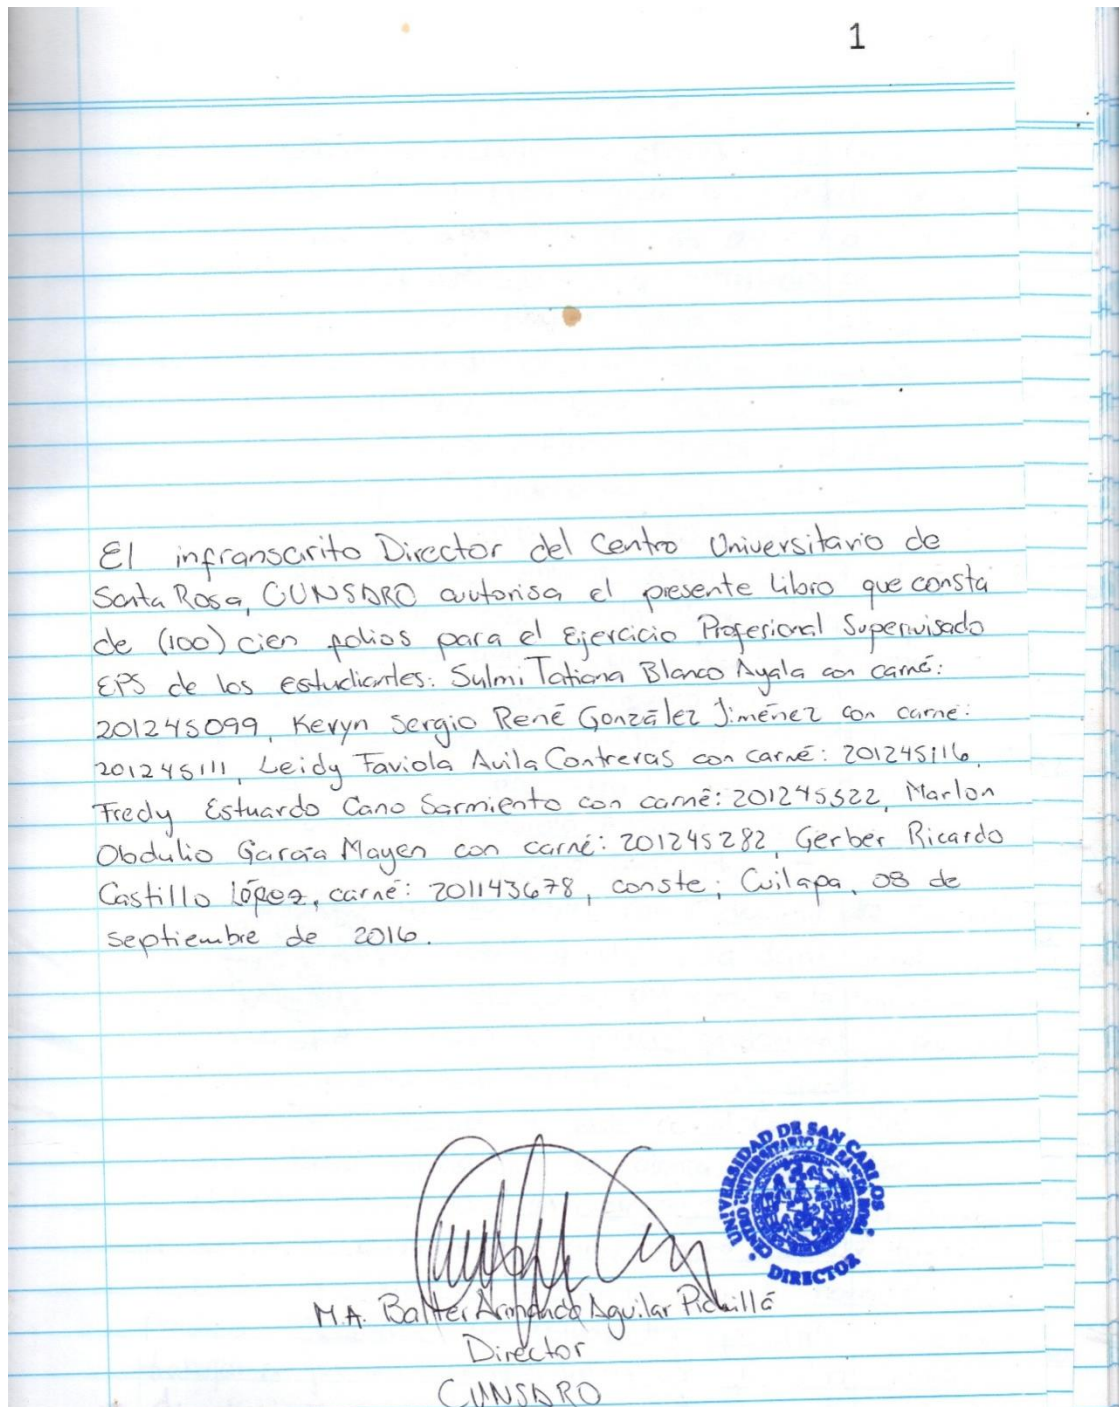 1
El infranscrito Director del Centro Universitario de
Santa Rosa, CUNSARO autorisa el presente Libro que consta
de (100) cien folios para el Ejercicio Profesional Supervisado
EPS de los estudiantes: Sulmi Tatiana Blanco Ayala con carné:
201245099, Kevyn Sergio René González Jiménez con carne:
201245111, Leidy Faviola Avila Contreras con carné: 201245116,
Fredy Estuardo Cano Sarmiento con carné: 201245322, Marlon
Obdulio García Mayen con carné: 201245282, Gerber Ricardo
Castillo López, carné: 201143678, conste; Cuilapa, 08 de
septiembre de 2016.
UNIVERSIDAD DE SAN CARLOS
CENTRO UNIVERSITARIO DE SANTA ROSA
DIRECTOR
M.A. Balter Armando Aguilar Pichillá
Director
CUNSARO